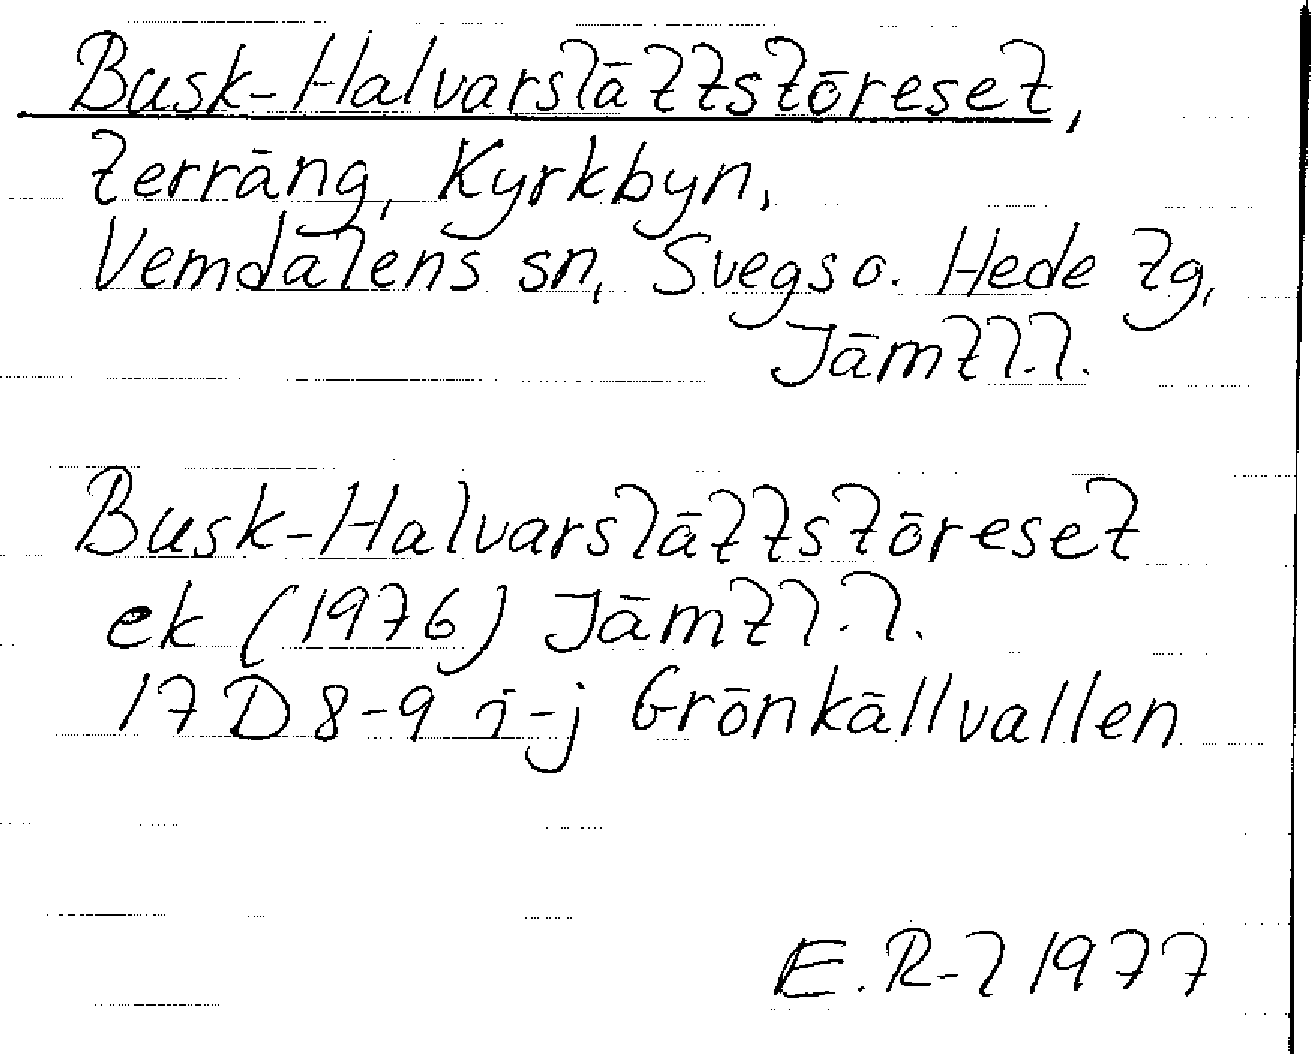 Busk-Halvarslättstöreset,
terräng, Kyrkbyn,
Vemdalens sn, Svegs o. Hede tg,
Jämtl.l.
Busk-Halvarslättstöreset
ek (1976) Jämtl.l.
17D 8-9 i-j Grönkällvallen
E.R-l 1977